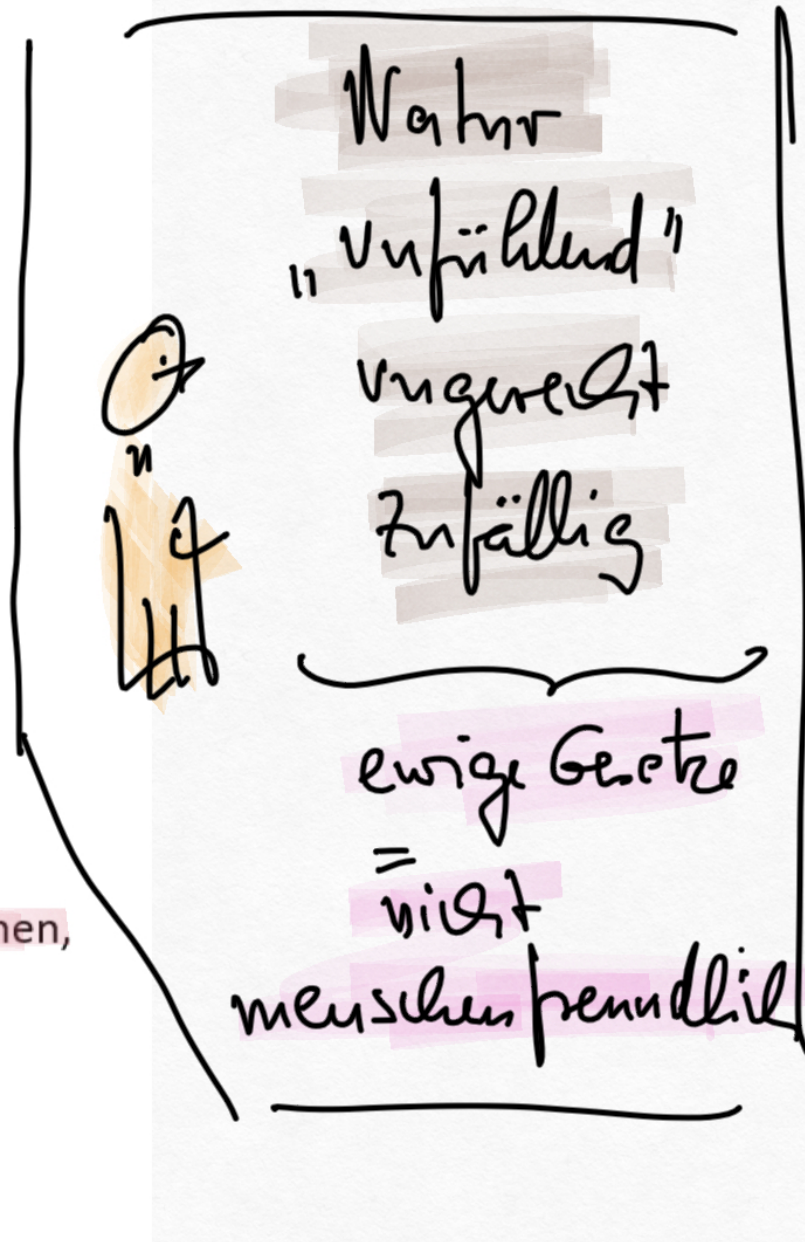 Natur
„unfühlend"
ungerecht
zufällig
ewige Gesetze
=
nicht
menschenfreundlich
nen,